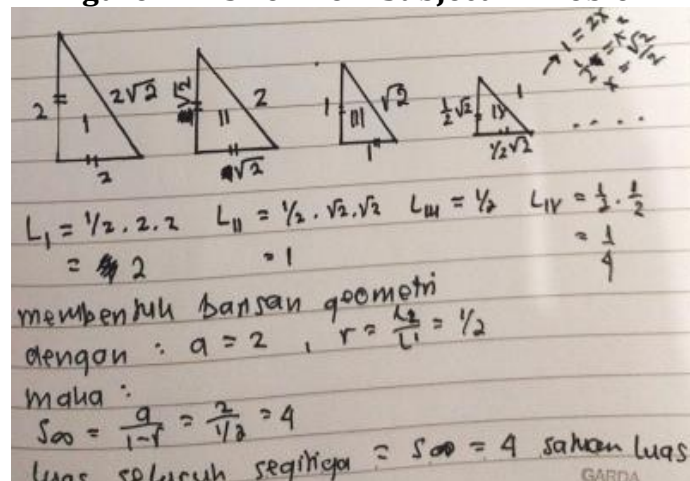 2 2√2 I 2
√2 2 II √2
1 √2 III 1
½√2 1 IV ½√2 . . . .
L_I = 1/2 . 2 . 2 L_II = 1/2 . √2 . √2 L_III = 1/2 L_IV = 1/2 . 1/2
= 2 = 1 = 1/4
membentuk barisan geometri
dengan : a = 2 , r = L2/L1 = 1/2
maka :
S∞ = a/1-r = 2/1/2 = 4
luas seluruh segitiga = S∞ = 4 satuan luas
GARDA